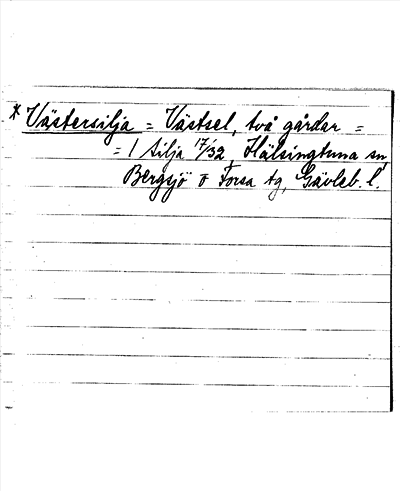 * Västersilja = Västsel, två gårdar =
= 1 Silja 17/32, Hälsingtuna sn,
Bergsjö o Forsa tg, Gävleb. l.